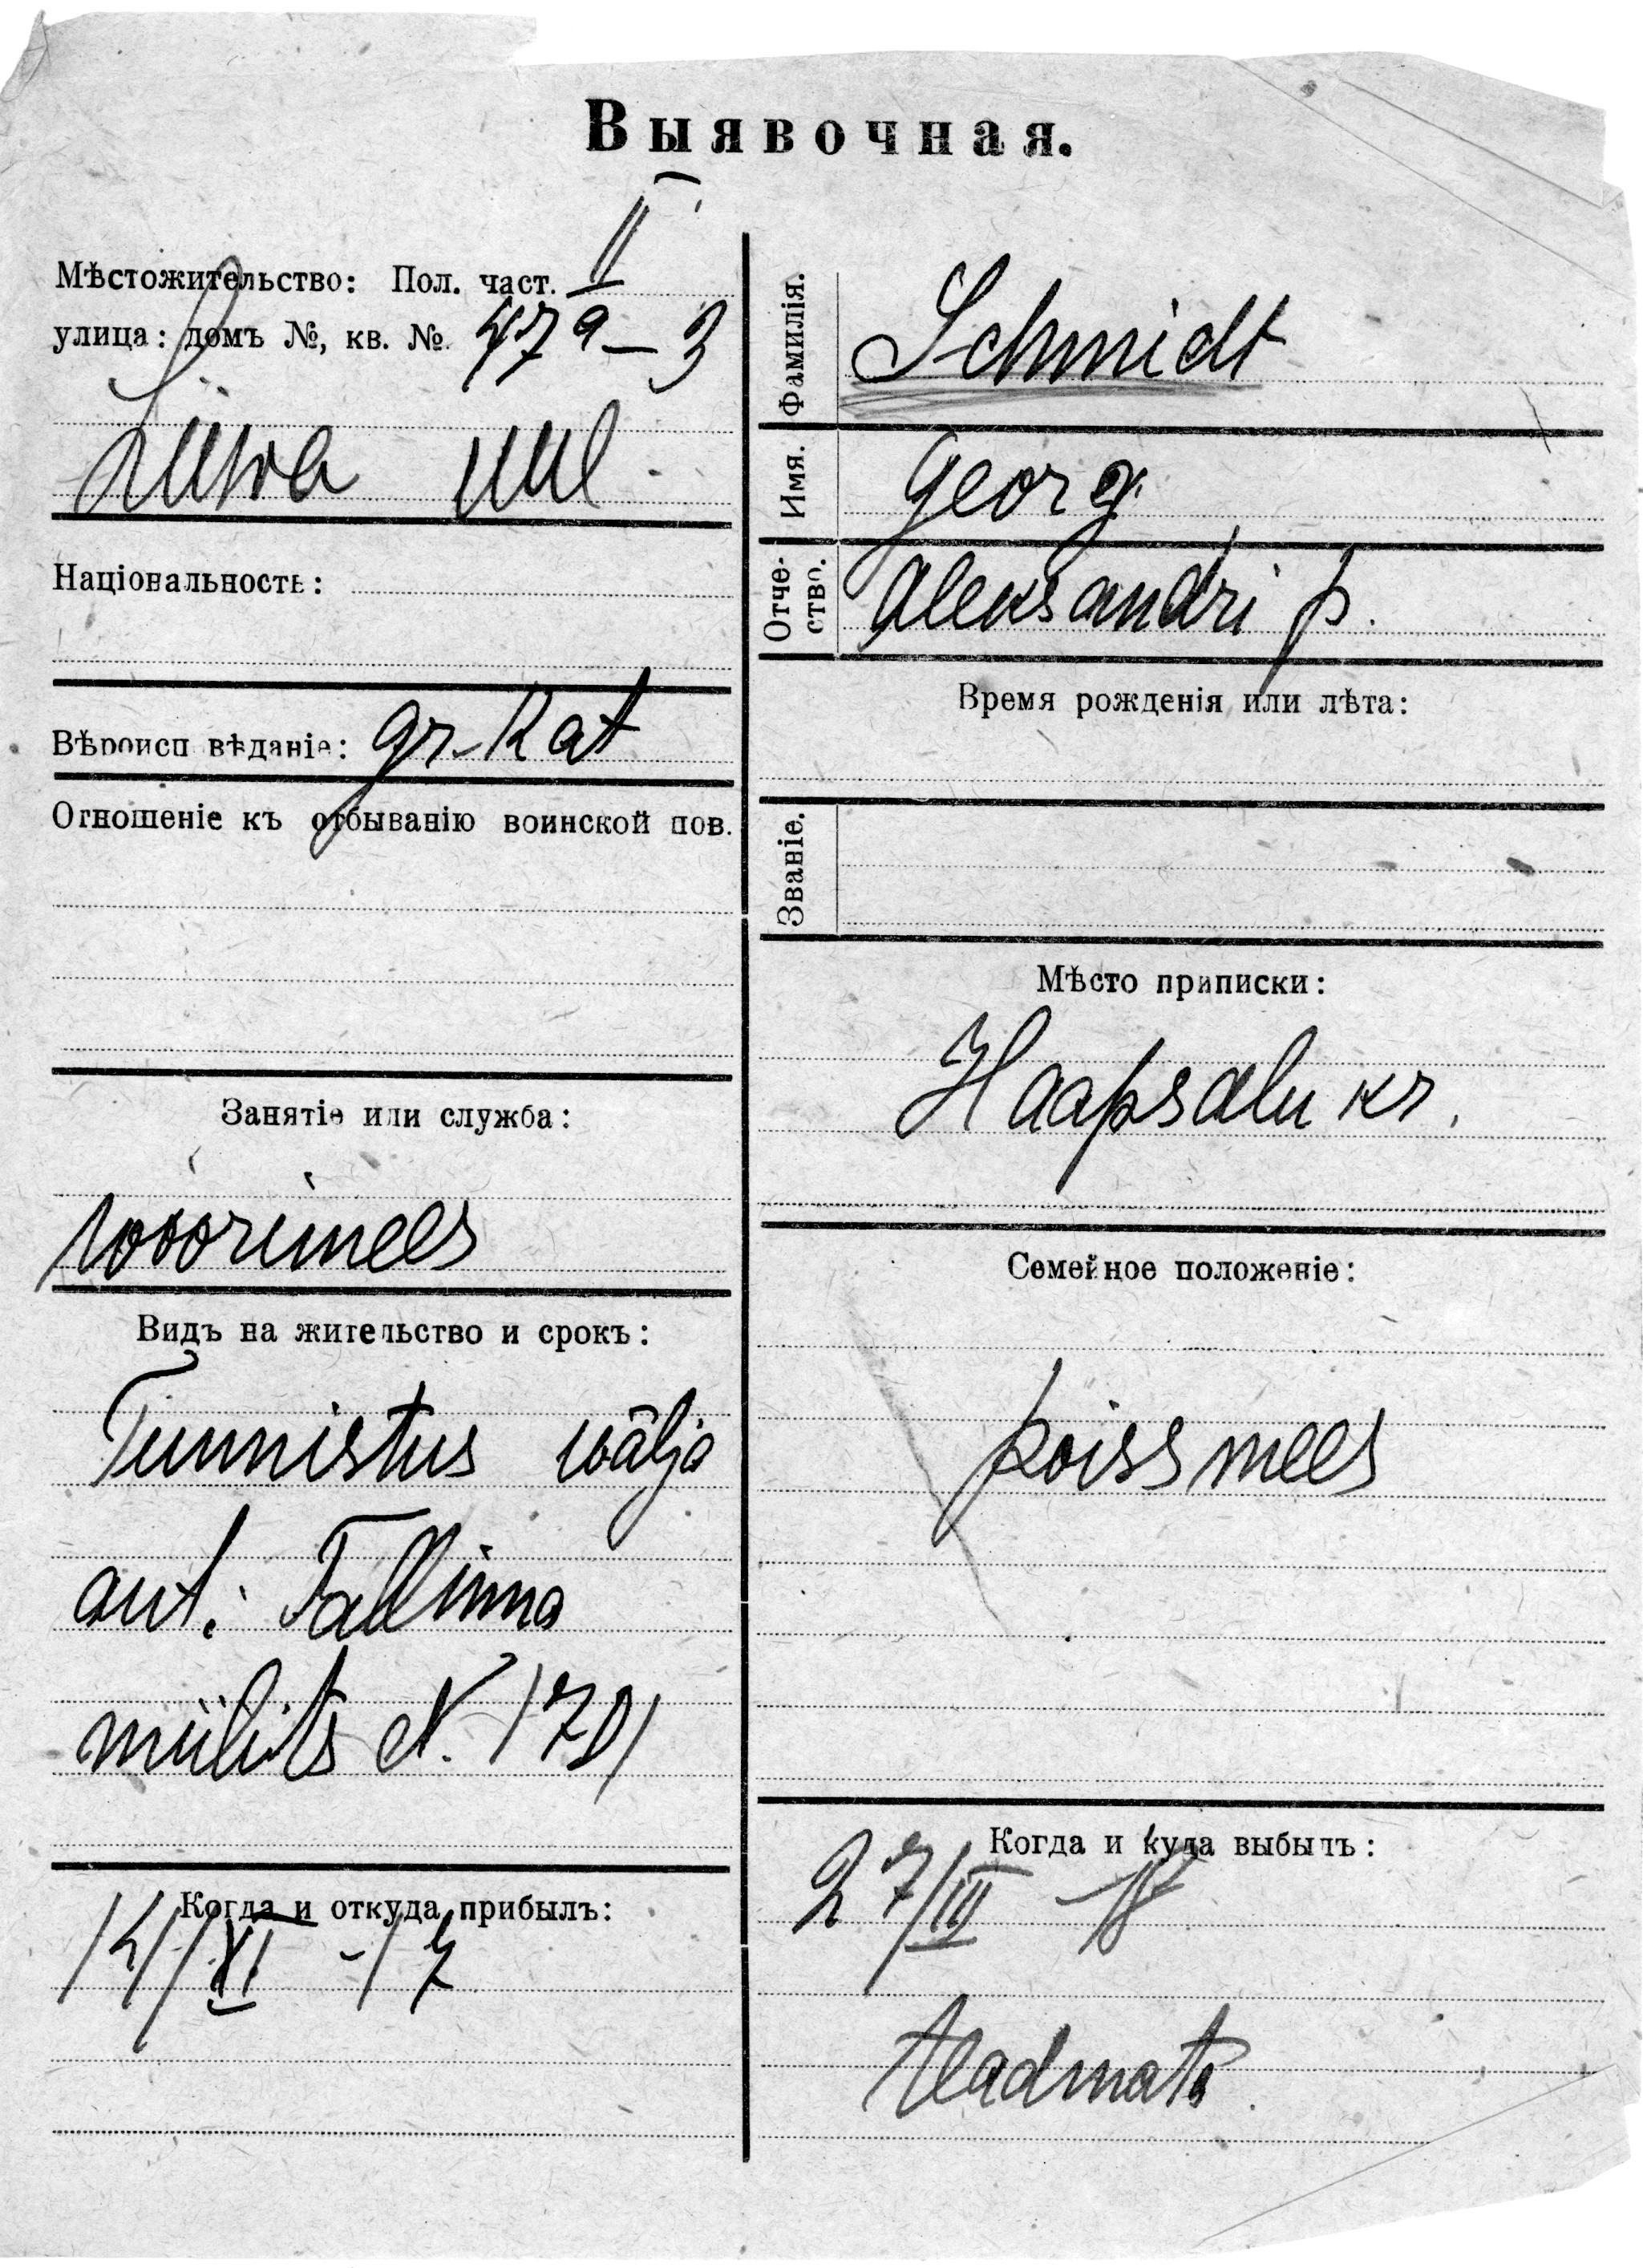 Выявочная.
Мѣстожительство: Пол. част. II
улица: домъ №, кв. № 47a – 3
Liiwa uul.
Національность:
Вѣроисп вѣданіе: gr-Kat
Отношеніе къ отбыванію воинской пов.
Занятіе или служба:
woorimees
Видъ на жительство и срокъ:
Tunnistus wälja
ant: Tallinna
miilits N. 1701
Когда и откуда прибылъ:
14/XI -17
Фамилія. Schmidt
Имя. Georg
Отче-
ство. Aleksandri p.
Время рожденія или лѣта:
Званіе.
Мѣсто приписки:
Haapsalu kr.
Семейное положеніе:
poissmees
Когда и куда выбылъ:
27/III -18
teadmata